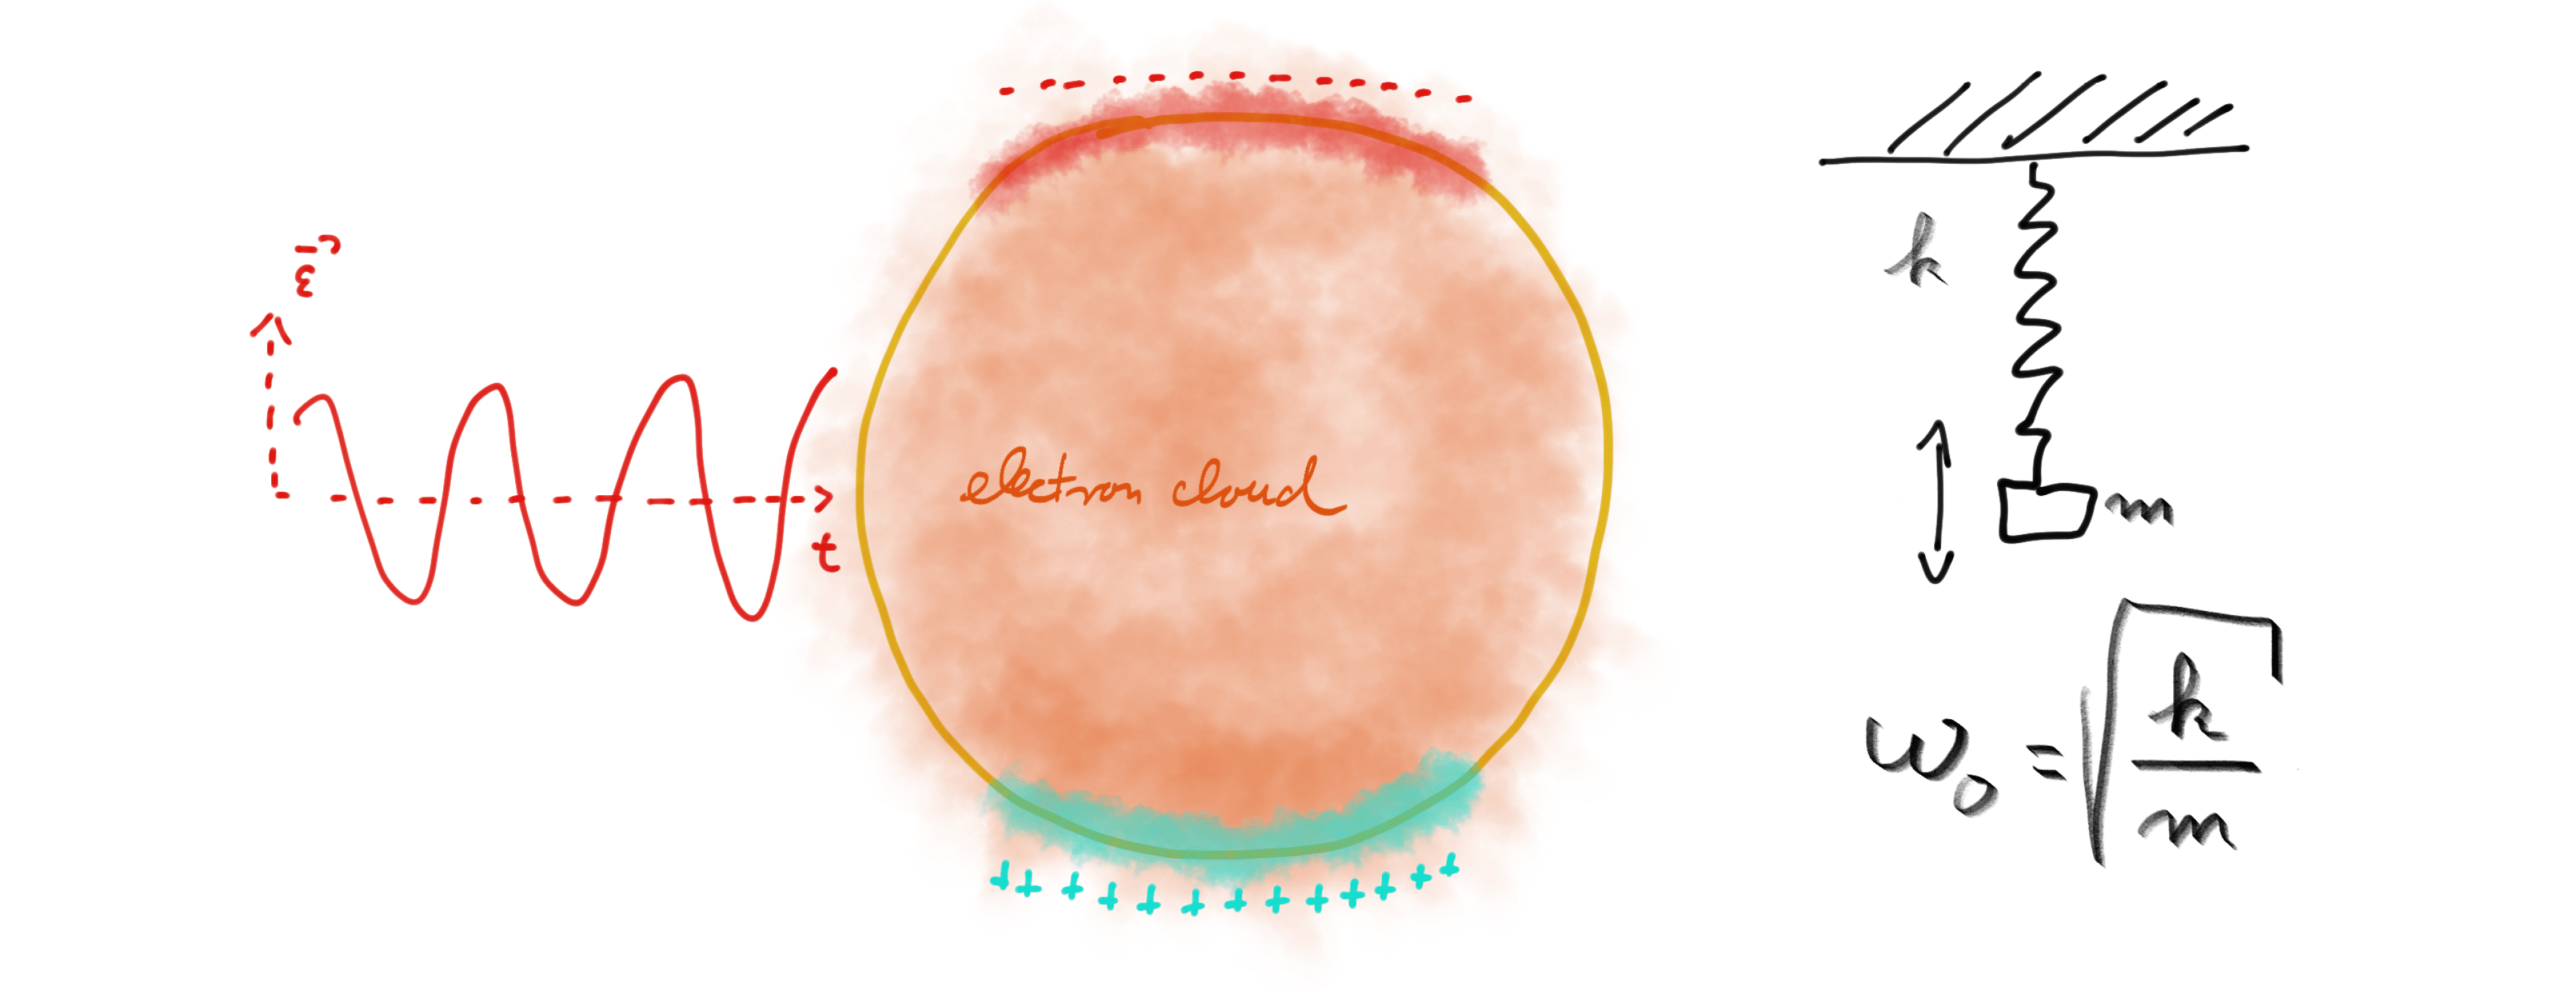 ε⃗
t
- - - - - - - - - - - - -
electron cloud
+ + + + + + + + + + + + +
k
m
ω₀ = √(k/m)